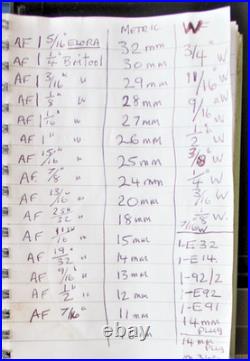 METRIC W
AF 1 5/16" ELORA 32 mm 3/4"
AF 1 1/4" Britool 30 mm 11/16" W
AF 1 3/16" " 29 mm 9/16" W
AF 1 1/8 " 28 mm 1/2" W
AF 1 1/16" " 27 mm 3/8" W
AF 1" " 26 mm 1/4" W
AF 15/16" " 25 mm 3/16 W
AF 7/8" 24 mm 1/8 W.
AF 13/16" " 20 mm 7/16 W
AF 25/32" " 18 mm 1-E32
AF " 15 mm 1-E14
AF 19/32" " 14 mm 1-92/2
AF 9/16" " 13 mm 1-E92
AF 1/2" " 12 mm 1-E91
AF 7/16" 11 mm 14 mm PLUG
14 mm PLUG